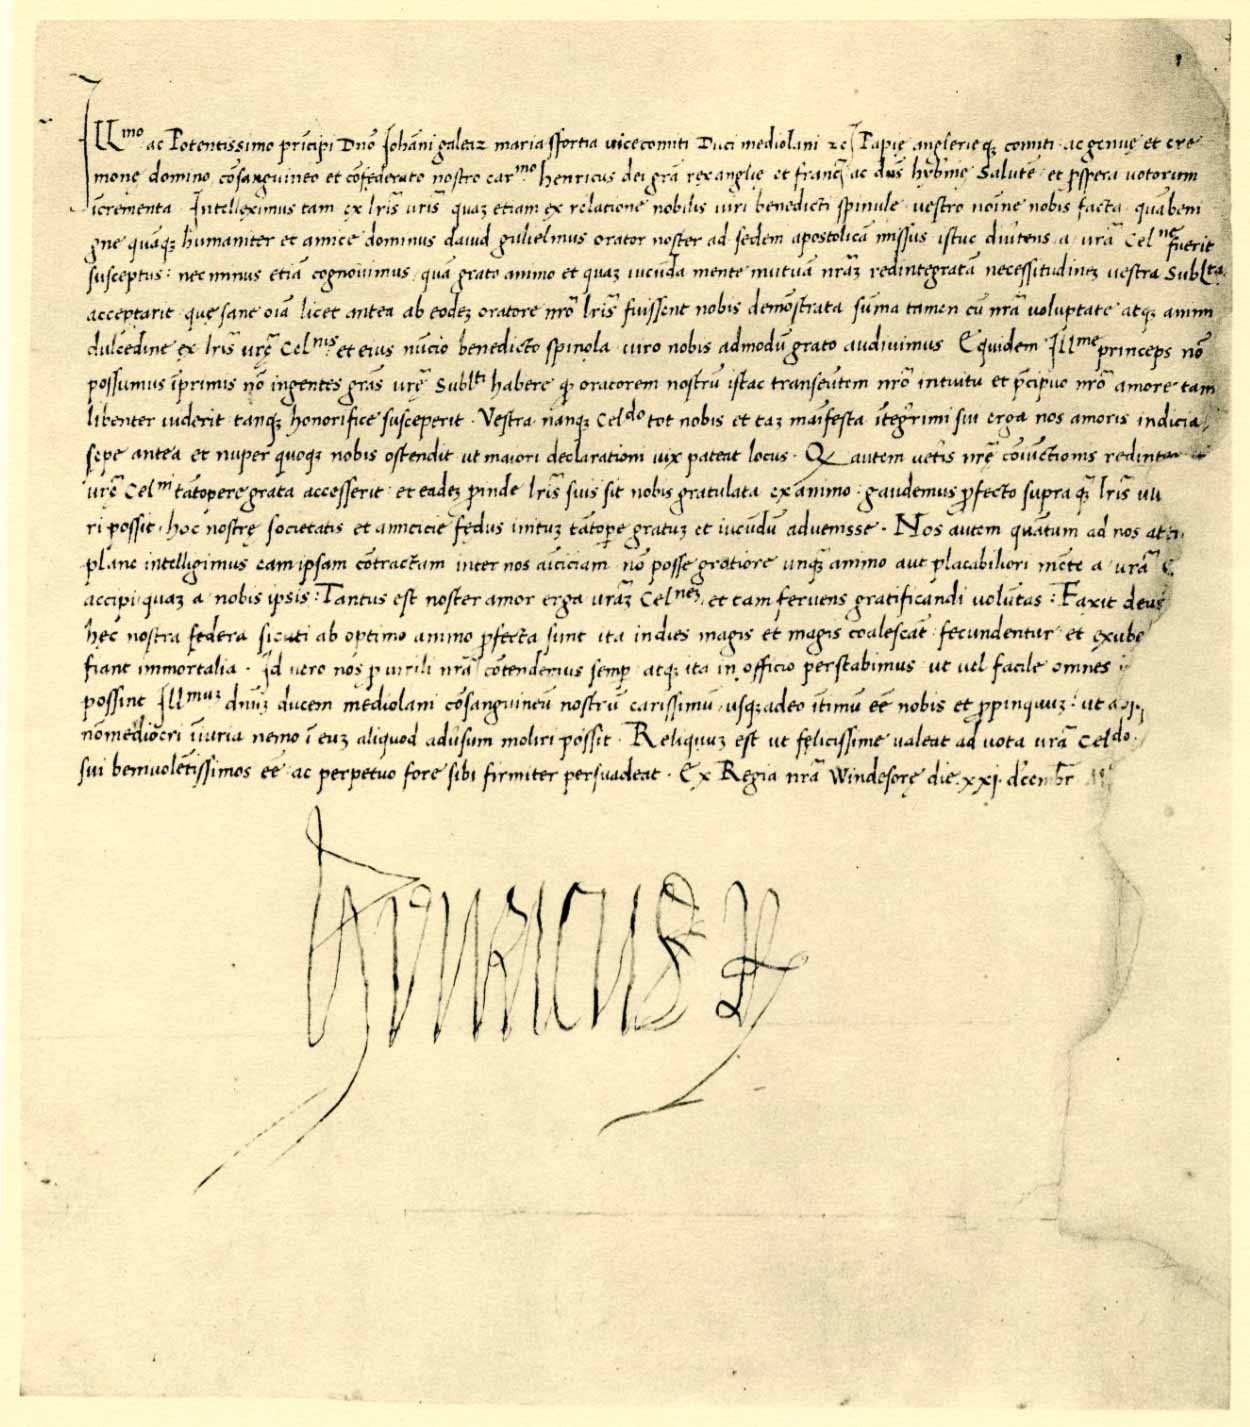 Ill^mo ac Potentissimo prīcipi Dnō Johāni galeaz maria sfortia vicecomiti Duci mediolani zc̄ Papię anglerieqȝ comiti ac genuę et cre
monę domino cōsanguineo et cōfederato nostro car^mo henricus dei grā rex anglię et francię ac dn̄s hyb̄nię Salutē et p̄spera votorum
īcrementa. Intelleximus tam ex lr̄is vr̄is quaȝ etiam ex relatione nobilis viri benedicti spinule vestro noīne nobis facta quā beni
gne quāqȝ humaniter et amice dominus dauid gulielmus orator noster ad sedem apostolicā missus istuc diūtens a vrā Cel^ne fuerit
susceptus: nec minus etiā cognouimus quā grato animo et quaȝ iucūda mente mutuā nrāȝ redintegratā necessitudineȝ vestra Subl^tas
acceptarit quę sane oīa licet antea ab eodeȝ oratore nrō lr̄is fuissent nobis demōstrata sūma tamen cū nrā voluptate atqȝ animi
dulcedine ex lr̄is vrę̄ Cel^nis et eius nūcio benedicto spinola viro nobis admodū grato audiuimus Equidem Ill^me princeps nō
possumus īprimis nō ingentes grās vrę̄ Subl^ti habere qȝ oratorem nostrū istac transeūtem nrō intuitu et p̄cipuo nrō amore tam
libenter viderit tanqȝ honorifice susceperit. Vestra nanqȝ Cel^do tot nobis et taȝ manīfesta īteḡrimi sui erga nos amoris indicia
sępe antea et nuper quoqȝ nobis ostendit ut maiori declarationi vix pateat locus. Qȝ autem vetīs nrę̄ coniūctionis
vrę̄ Cel^ni tātopere grata accesserit et eadeȝ proinde lr̄is suis sit nobis gratulata ex animo: gaudemus p̄fecto supra qȝ lr̄is
ri possit hoc nostrę societatis et amicicie fędus initūȝ tātope gratuȝ et iucūdū aduenisse. Nos autem quātum ad nos
plane intelligimus eam ipsam cōtractam inter nos amīciciam nō posse gratiore unqȝ animo aut placabiliori mēte a vrā
accipi quaȝ a nobis ipsis: Tantus est noster amor erga vrāȝ Cel^neȝ et tam feruens gratificandi volūtas: Faxit deus
hęc nostra fędera sicuti ab optimo animo p̄fecta sunt ita indies magis et magis coalescāt fecundentur et
fiant immortalia. Id vero nos p virili nrā cōtendemus semp̄ atqȝ ita in officio perstabimus ut vel facile omnes
possint Ill^muȝ dnūȝ ducem mediolani cōsanguineū nostrū carissimū usqȝadeo ītimū eē nobis et p̄pinquuȝ: ut
nōmediōcri īiuria nemo ī euȝ aliquod adūsum moliri possit. Reliquuȝ est ut fęlicissime valeat ad vota vrā Cel^do
sui beniuolētissimos eē ac perpetuo fore sibi firmiter persuadeat. Ex Regia nrā Windesorę die. xxj. decembr̄
henricus R